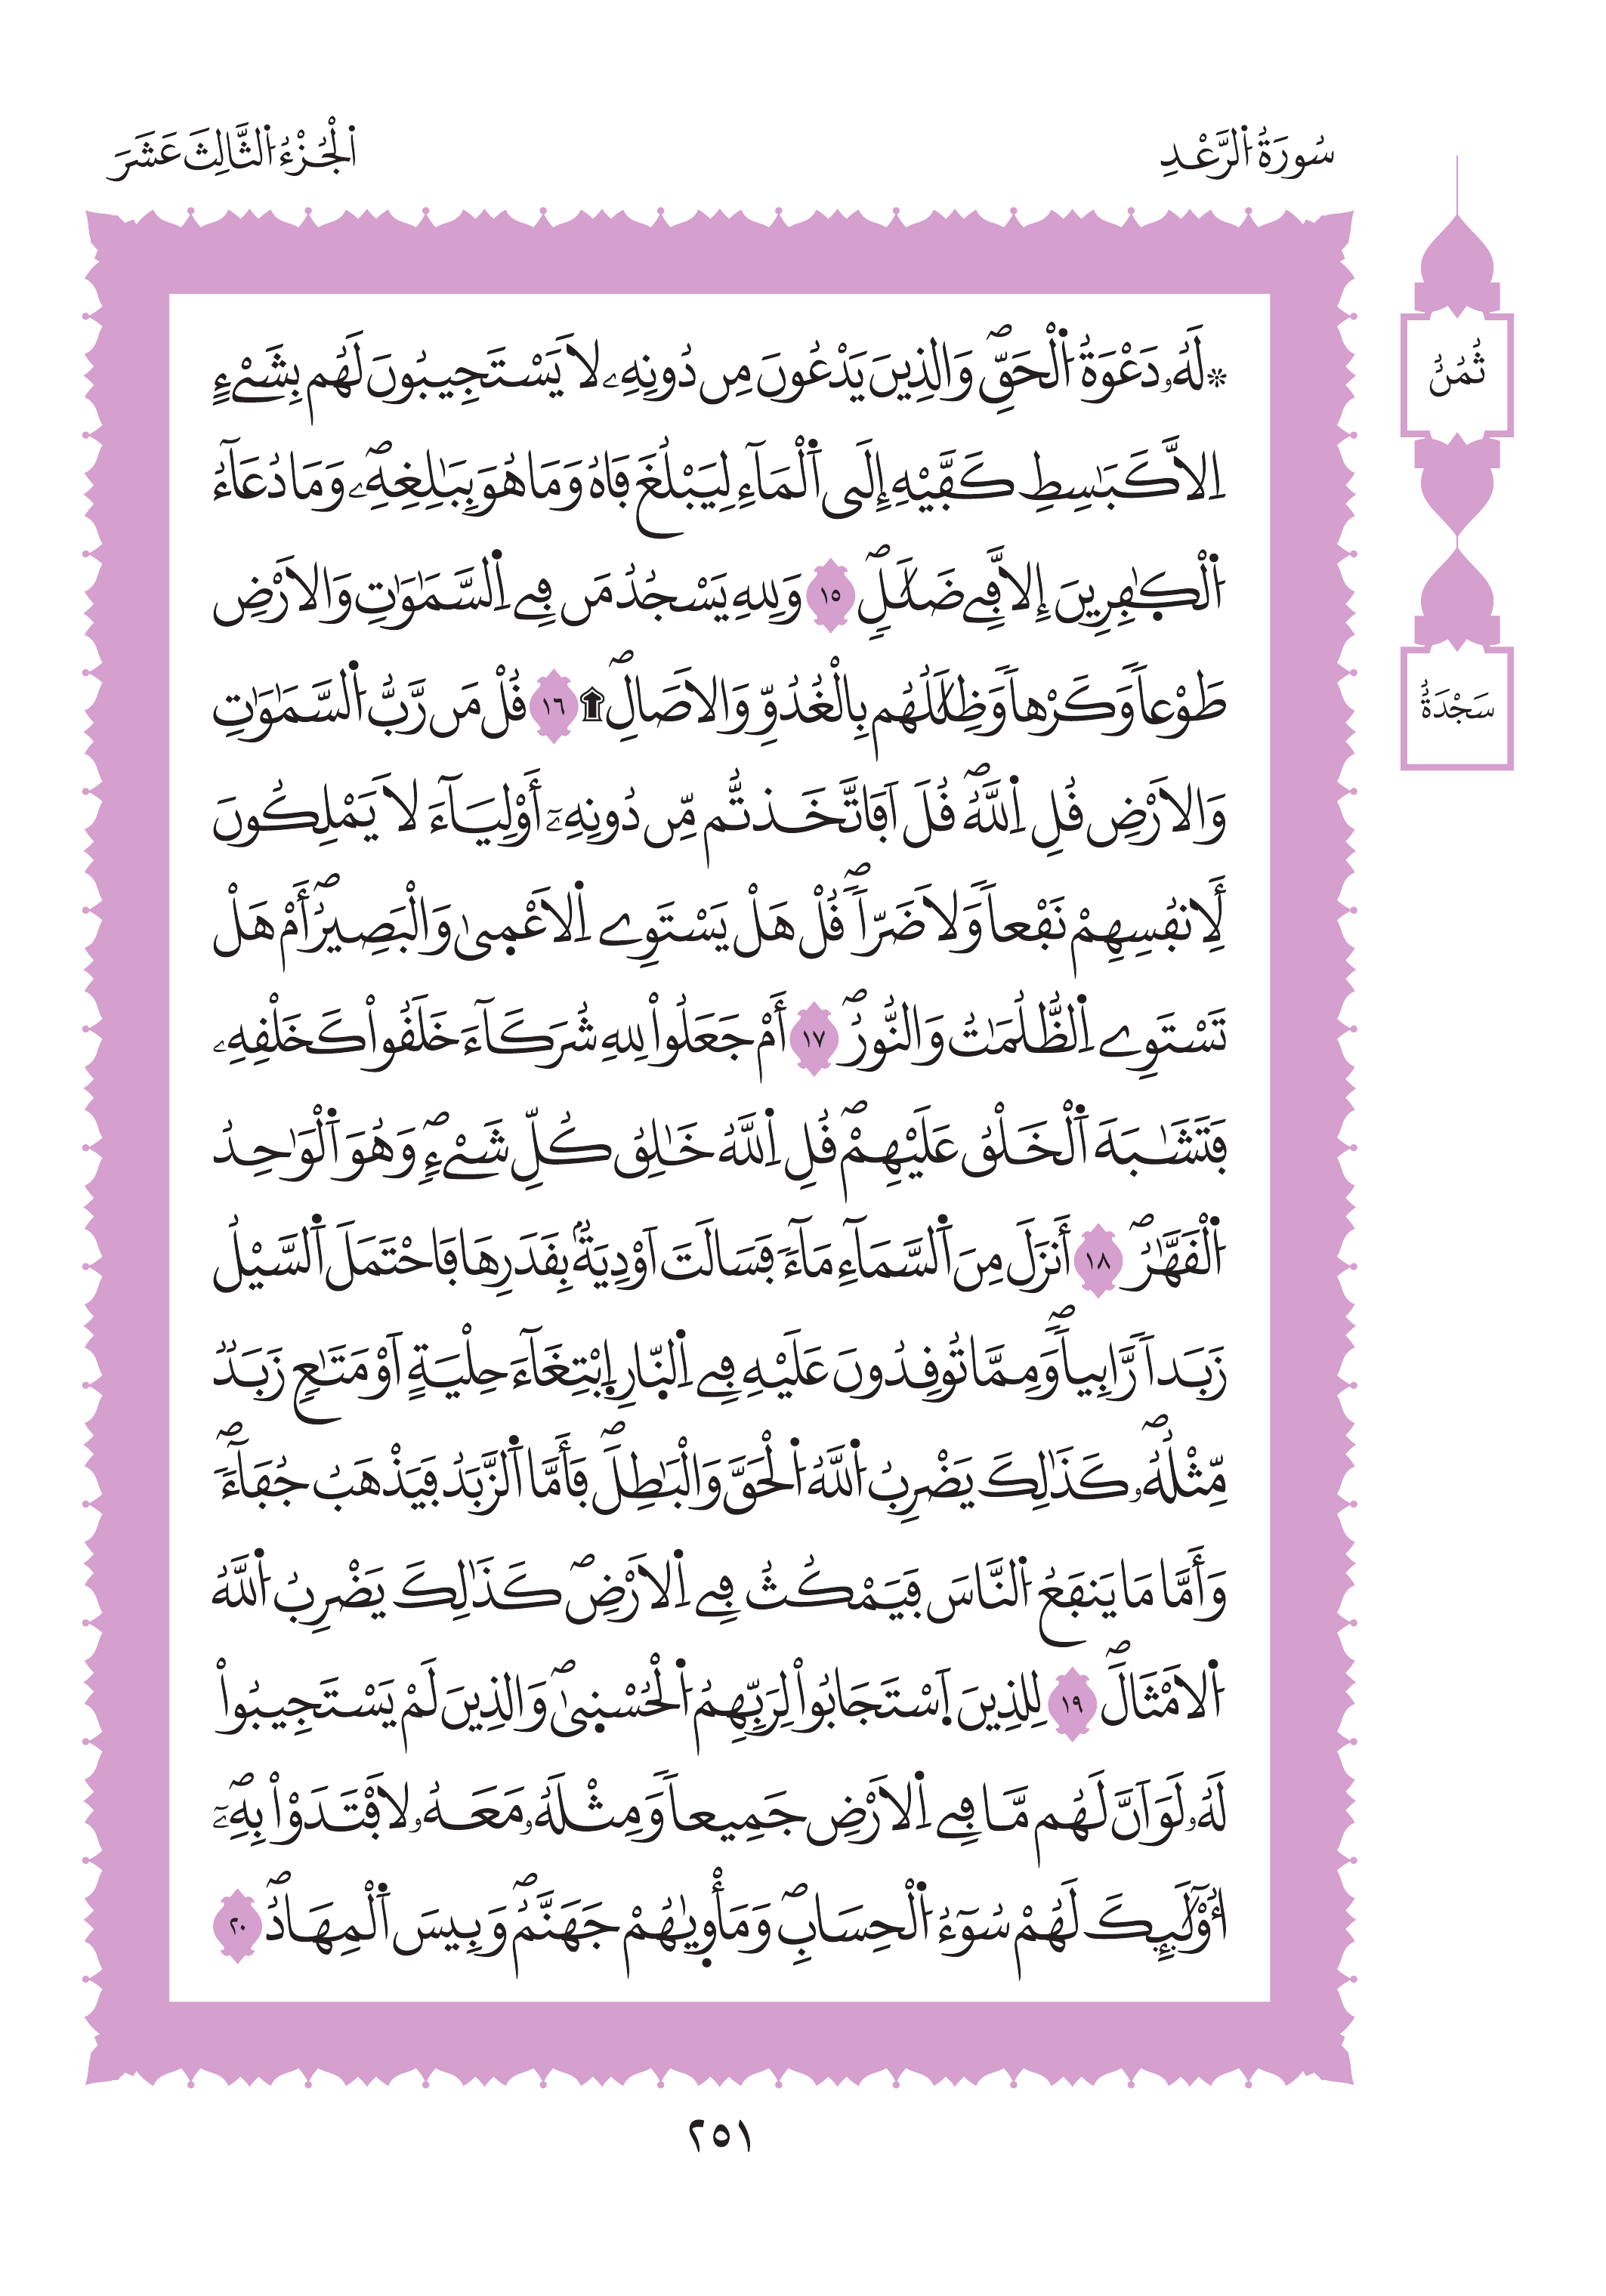 سُورَةُ اُ۬لرَّعْدِ
اَ۬لْجُزْءُ اُ۬لثَّالِثَ عَشَرَ
ثُمُنٌ
سَجْدَةٌ
۞ لَهُۥ دَعْوَةُ اُ۬لْحَقِّۖ وَالذِينَ يَدْعُونَ مِن دُونِهِۦ لَا يَسْتَجِيبُونَ لَهُم بِشَےْءٍ
اِلَّا كَبَٰسِطِ كَفَّيْهِ إِلَى اَ۬لْمَآءِ لِيَبْلُغَ فَاهُ وَمَا هُوَ بِبَٰلِغِهِۦۖ وَمَا دُعَآءُ
اُ۬لْكٰ۪فِرِينَ إِلَّا فِے ضَلَٰلٖۖ ١٥ وَلِلهِ يَسْجُدُ مَن فِے اِ۬لسَّمَٰوَٰتِ وَالَارْضِ
طَوْعاٗ وَكَرْهاٗ وَظِلَٰلُهُم بِالْغُدُوِّ وَالَاصَالِۖ ۩ ١٦ قُلْ مَن رَّبُّ اُ۬لسَّمَٰوَٰتِ
وَالَارْضِ قُلِ اِ۬للَّهُۖ قُلَ اَفَاتَّخَذتُّم مِّن دُونِهِۦٓ أَوْلِيَآءَ لَا يَمْلِكُونَ
لِأَنفُسِهِمْ نَفْعاٗ وَلَا ضَرّاٗۖ قُلْ هَلْ يَسْتَوِے اِ۬لَاعْم۪ىٰ وَالْبَصِيرُۖ أَمْ هَلْ
تَسْتَوِے اِ۬لظُّلُمَٰتُ وَالنُّورُۖ ١٧ أَمْ جَعَلُواْ لِلهِ شُرَكَآءَ خَلَقُواْ كَخَلْقِهِۦ
فَتَشَٰبَهَ اَ۬لْخَلْقُ عَلَيْهِمْۖ قُلِ اِ۬للَّهُ خَٰلِقُ كُلِّ شَےْءٖۖ وَهُوَ اَ۬لْوَٰحِدُ
اُ۬لْقَهَّٰرُۖ ١٨ أَنزَلَ مِنَ اَ۬لسَّمَآءِ مَآءٗ فَسَالَتَ اَوْدِيَةُۢ بِقَدَرِهَا فَاحْتَمَلَ اَ۬لسَّيْلُ
زَبَداٗ رَّابِياٗۖ وَمِمَّا تُوقِدُونَ عَلَيْهِ فِے اِ۬لنّ۪ارِ اِ۪بْتِغَآءَ حِلْيَةٍ اَوْ مَتَٰعٖ زَبَدٞ
مِّثْلُهُۥۖ كَذَٰلِكَ يَضْرِبُ اُ۬للَّهُ اُ۬لْحَقَّ وَالْبَٰطِلَۖ فَأَمَّا اَ۬لزَّبَدُ فَيَذْهَبُ جُفَآءٗۖ
وَأَمَّا مَا يَنفَعُ اُ۬لنَّاسَ فَيَمْكُثُ فِے اِ۬لَارْضِۖ كَذَٰلِكَ يَضْرِبُ اُ۬للَّهُ
اُ۬لَامْثَالَۖ ١٩ لِلذِينَ اَ۪سْتَجَابُواْ لِرَبِّهِمُ اُ۬لْحُسْن۪ىٰۖ وَالذِينَ لَمْ يَسْتَجِيبُواْ
لَهُۥ لَوَ اَنَّ لَهُم مَّا فِے اِ۬لَارْضِ جَمِيعاٗ وَمِثْلَهُۥ مَعَهُۥ لَافْتَدَوْاْ بِهِۦٓۖ
أُوْلَٰٓئِكَ لَهُمْ سُوٓءُ اُ۬لْحِسَابِۖ وَمَأْو۪يٰهُمْ جَهَنَّمُۖ وَبِيسَ اَ۬لْمِهَادُۖ ٢٠
٢٥١